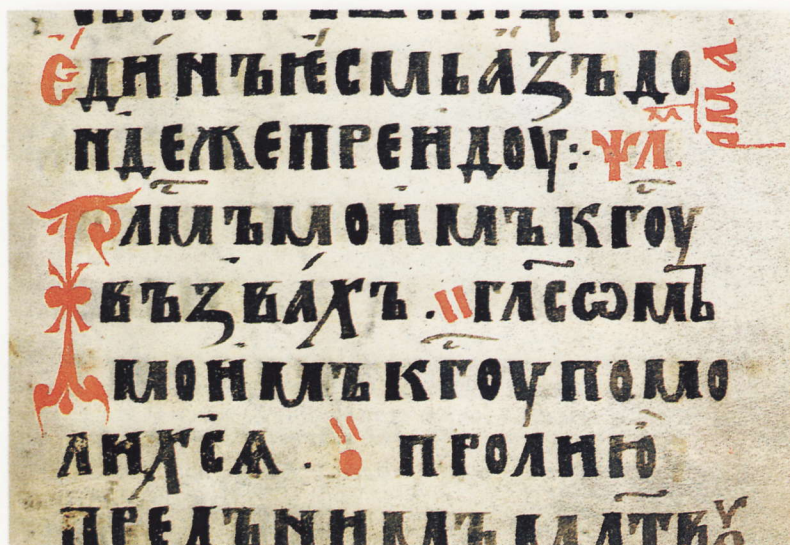 единъ ѥсмь азъ до
ндеже прендоу: ѱл. рма.
Глмъ моимъ к гоу
въззвахъ. гл҃сѡмь
моимъ к гоу помо
лихсѧ. пролию
предъ нимъ млтвоу